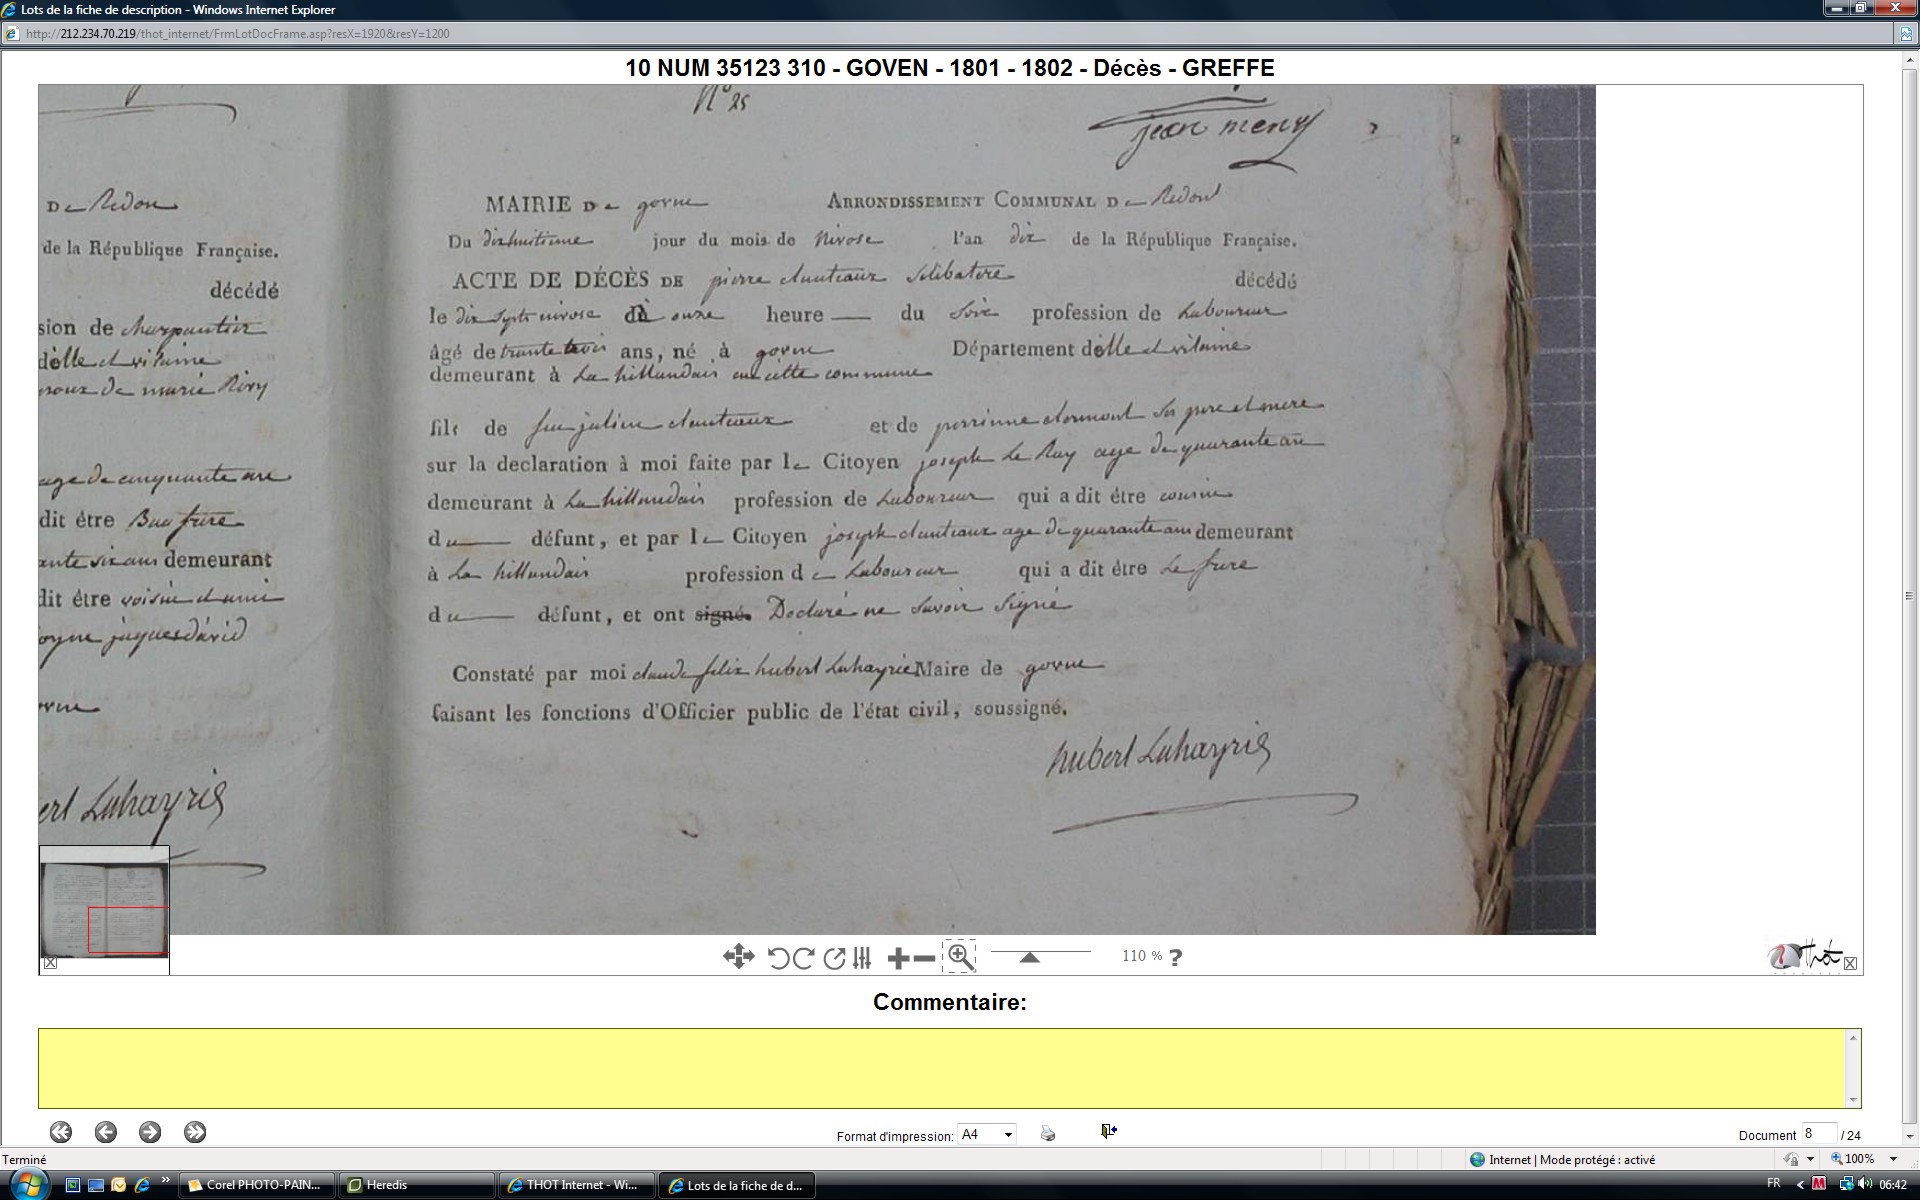 Lots de la fiche de description - Windows Internet Explorer
http://212.234.70.219/thot_internet/FrmLotDocFrame.asp?resX=1920&resY=1200
10 NUM 35123 310 - GOVEN - 1801 - 1802 - Décès - GREFFE
N° 25
jean meny
De Redon
de la République Française.
décédé
sion de charpantier
d'elle et vilaine
poux de marie Rivy
age de cinquante
dit être Beau frere
ante six ans demeurant
dit être voisin et ami
jaques david
ert Luhayrie
MAIRIE De govne ARRONDISSEMENT COMMUNAL De Redon
Du dixhuitieme jour du mois de Nivose l'an dix de la République Française.
ACTE DE DÉCÈS DE pierre danteaux Selibatere décédé
le dix septe nivose à onze heure du Soire profession de Laboureur
âgé de trante trois ans, né à govne Département d'elle et vilaine
demeurant à La hillandais en cette commune
fils de feu julien danteaux et de perrinne dormont Ses pere et mere
sur la declaration à moi faite par le Citoyen joseph Le Ray age de quarante an
demeurant à La hillandais profession de Laboureur qui a dit être cousin
du défunt, et par le Citoyen joseph danteaux age de quarante ans demeurant
à La hillandais profession de Laboureur qui a dit être Le frere
du défunt, et ont signé. Declaré ne Savoir Signé
Constaté par moi claude felix hubert Luhayrie Maire de govne
faisant les fonctions d'Officier public de l'état civil, soussigné.
hubert Luhayrie
110 % ?
Thot
Commentaire:
Format d'impression: A4
Document 8 / 24
Terminé
Internet | Mode protégé : activé
100%
Corel PHOTO-PAIN...
Heredis
THOT Internet - Wi...
Lots de la fiche de d...
FR
06:42